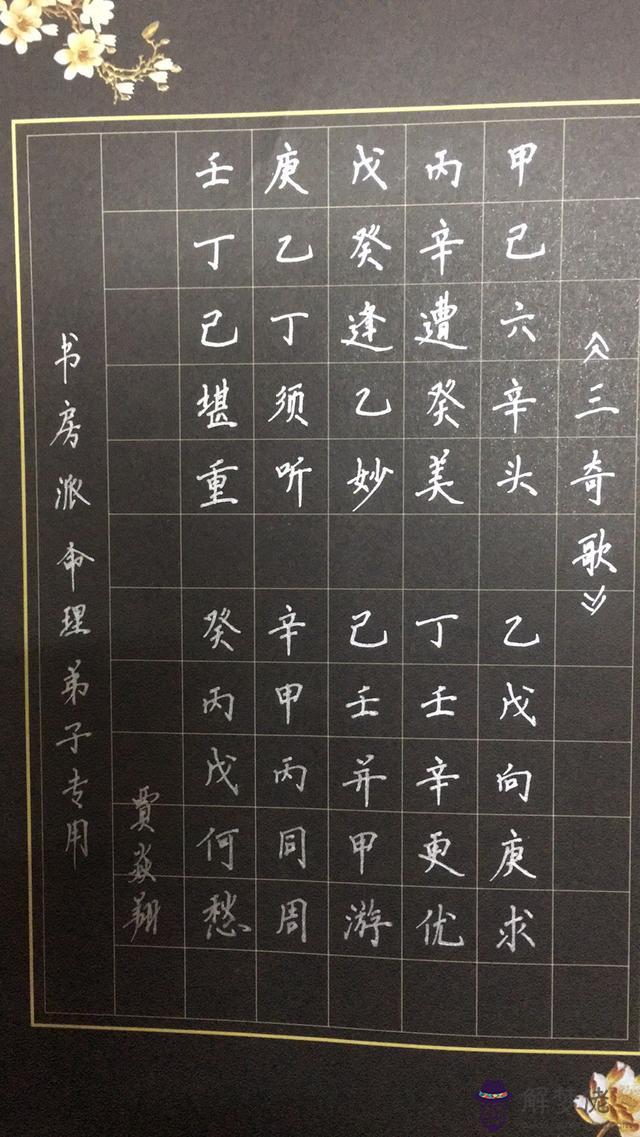 《三奇歌》
甲己六辛头 乙戊向庚求
丙辛遭癸美 丁壬辛更优
戊癸逢乙妙 己壬并甲游
庚乙丁须听 辛甲丙同周
壬丁己堪重 癸丙戊何愁
贾焱翔
书房派命理弟子专用
解梦佬